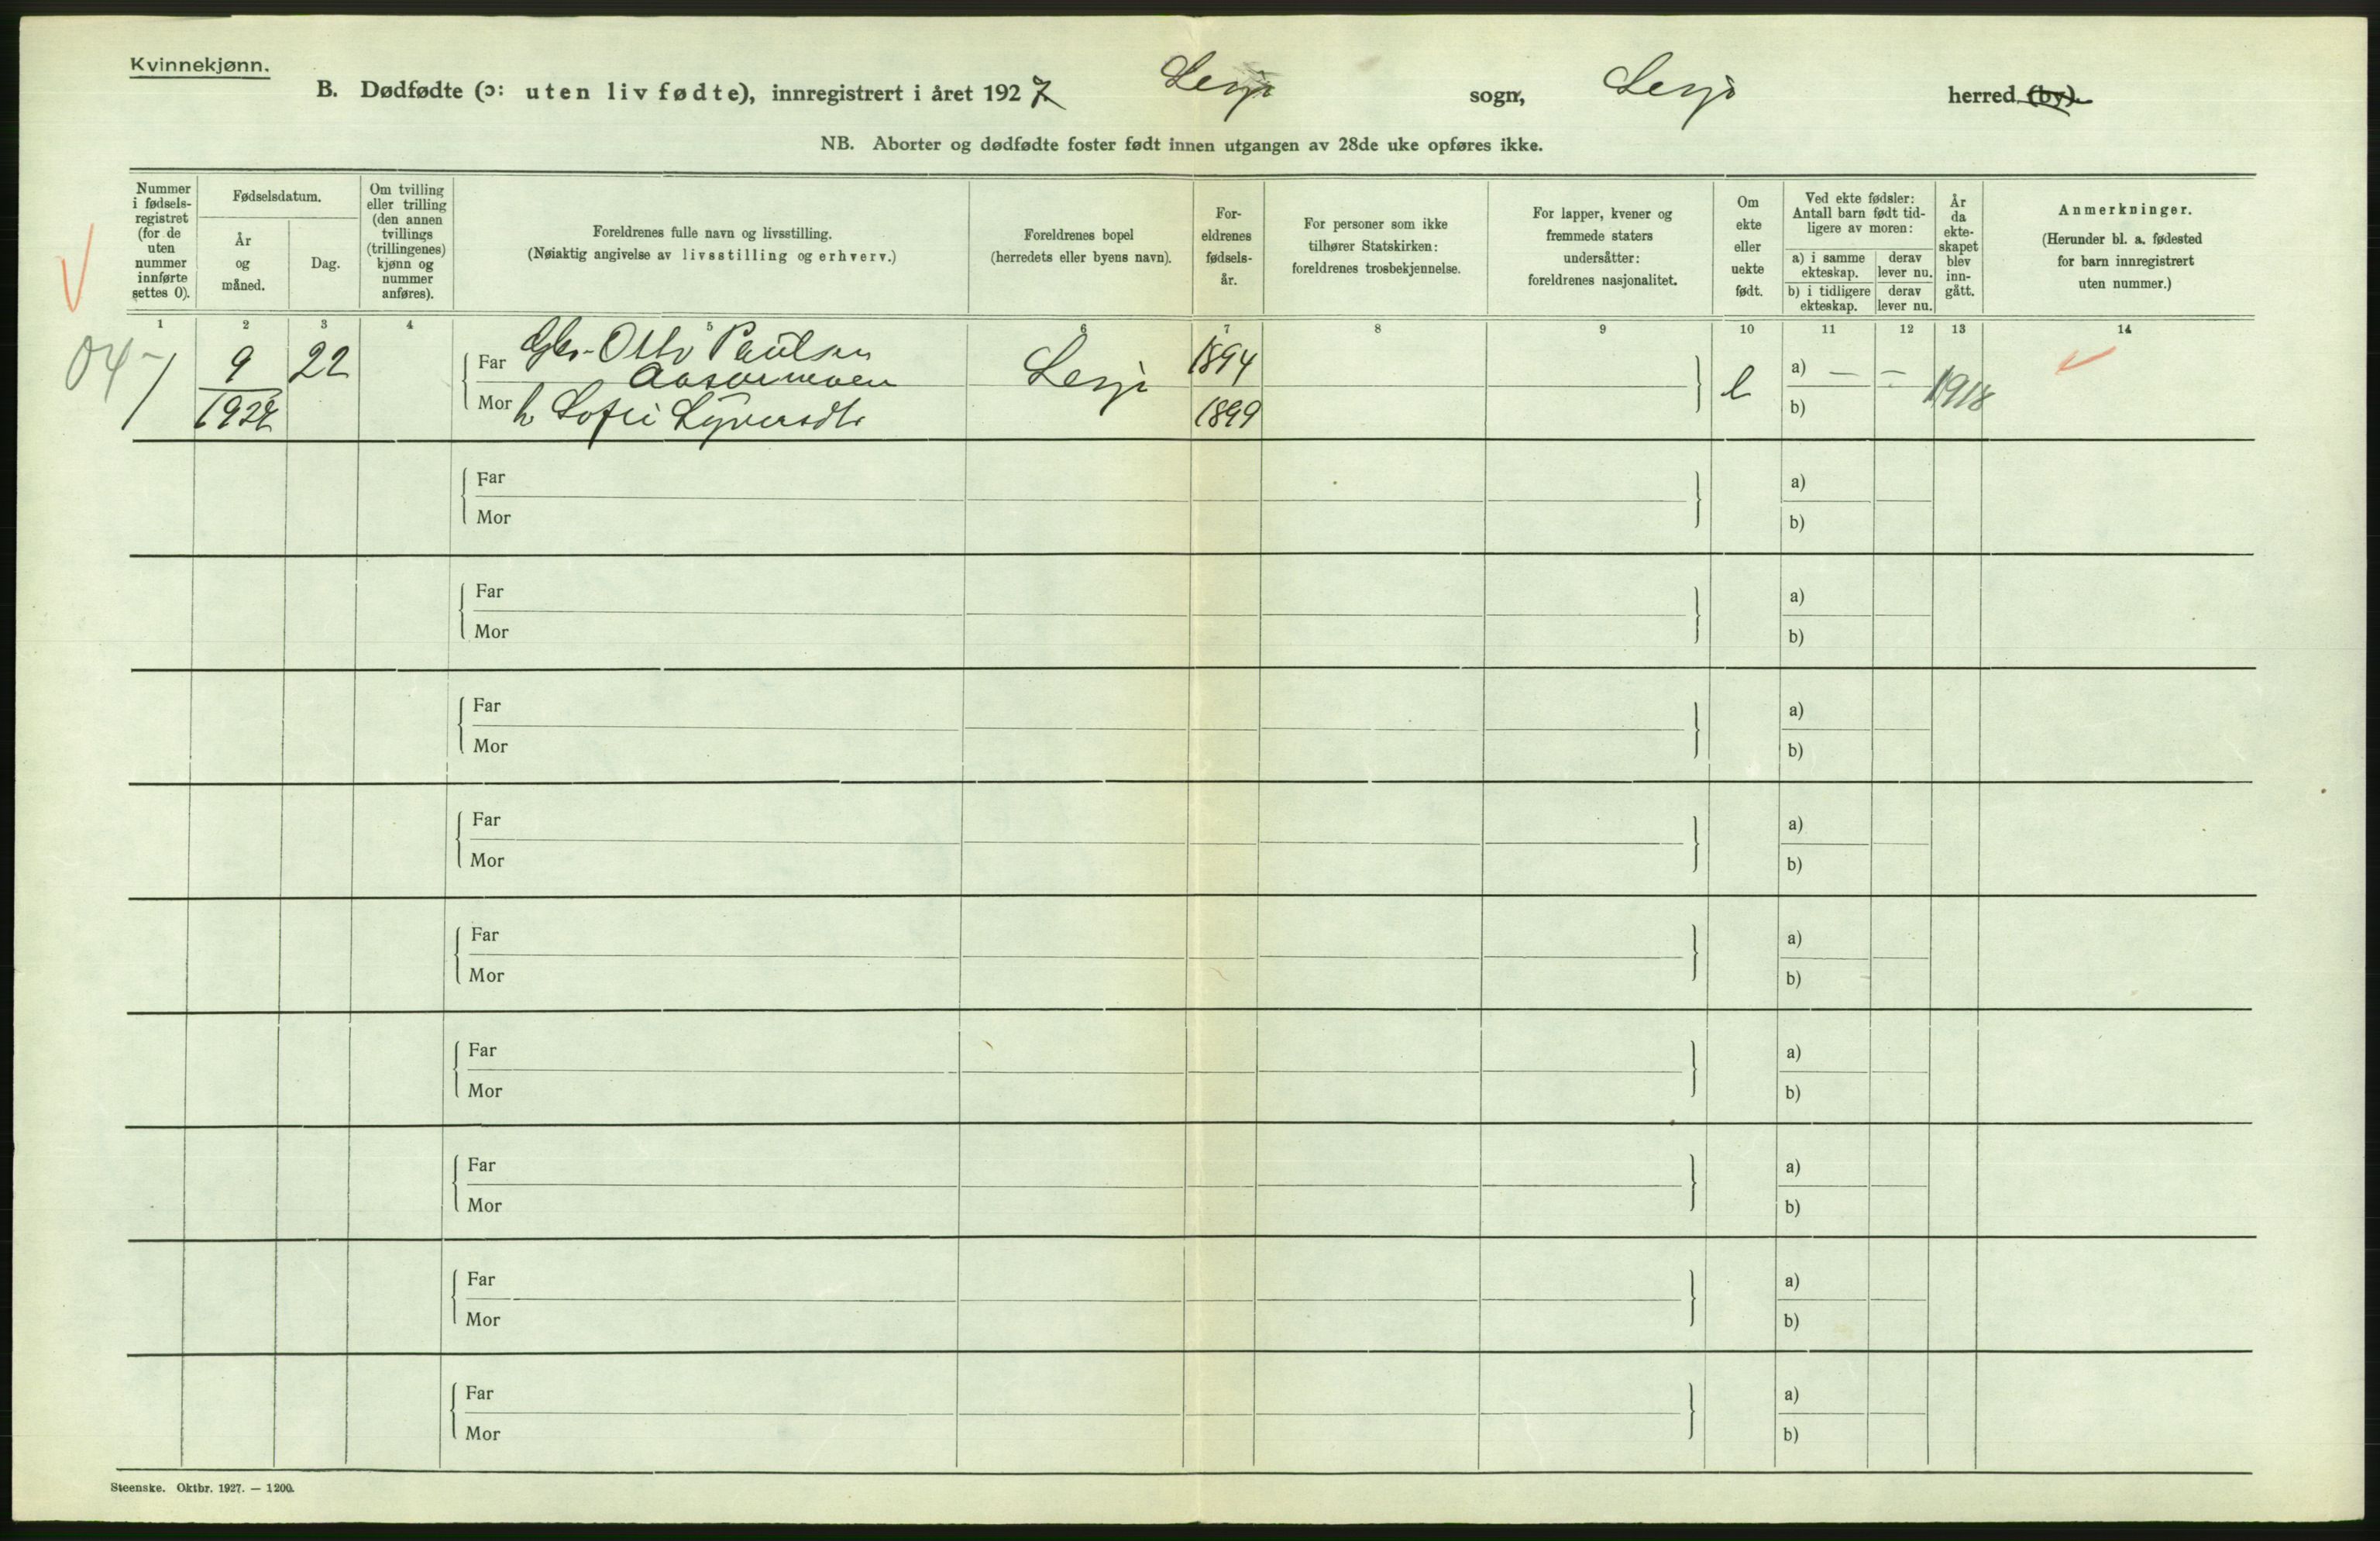 Kvinnekjønn.
B. Dødfødte (ɔ: uten liv fødte), innregistrert i året 1927 Lesja sogn, Lesja herred (by).
NB. Aborter og dødfødte foster født innen utgangen av 28de uke opføres ikke.
Nummer i fødsels-registret (for de uten nummer innførte settes 0).
Fødselsdatum.
År og måned.
Dag.
Om tvilling eller trilling (den annen tvillings (trillingenes) kjønn og nummer anføres).
Foreldrenes fulle navn og livsstilling.
(Nøiaktig angivelse av livsstilling og erhverv.)
Foreldrenes bopel
(herredets eller byens navn).
For-eldrenes fødsels-år.
For personer som ikke tilhører Statskirken: foreldrenes trosbekjennelse.
For lapper, kvener og fremmede staters undersåtter: foreldrenes nasjonalitet.
Om ekte eller uekte født.
Ved ekte fødsler: Antall barn født tid-ligere av moren:
a) i samme ekteskap.
derav lever nu.
b) i tidligere ekteskap.
derav lever nu.
År da ekte-skapet blev inn-gått.
Anmerkninger.
(Herunder bl. a. fødested for barn innregistrert uten nummer.)
1 2 3 4 5 6 7 8 9 10 11 12 13 14
04 1 9 22 Far Gbr. Otto Paulsen Lesja 1894 e a) — — 1918
Mor h Sofie Syversdtr 1899 b)
Far a)
Mor b)
Far a)
Mor b)
Far a)
Mor b)
Far a)
Mor b)
Far a)
Mor b)
Far a)
Mor b)
Far a)
Mor b)
Far a)
Mor b)
Far a)
Mor b)
Steenske. Oktbr. 1927. — 1200.